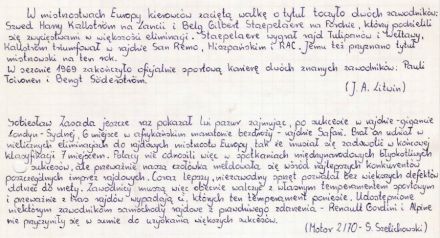 W mistrzostwach Europy kierowców zaciętą walkę o tytuł toczyło dwóch zawodników:
Szwed Harry Kallström na Lancii i Belg Gilbert Staepelaere na Fordzie, którzy podzielili
się zwycięstwami w większości eliminacji. Staepelaere wygrał rajd Tulipanów i Wełtawy,
Kallström triumfował w rajdzie San Remo, Hiszpańskim i RAC. Jemu też przyznano tytuł
mistrzowski na ten rok.
W sezonie 1969 zakończyło oficjalnie sportową karierę dwóch znanych zawodników: Pauli
Toivonen i Bengt Söderström.
(J.A. Litwin)
Sobiesław Zasada jeszcze raz pokazał lwi pazur zajmując, po sukcesie w rajdzie-gigancie
Londyn-Sydney, 6 miejsce w afrykańskim maratonie bezdroży - rajdzie Safari. Brał on udział w
nielicznych eliminacjach do rajdowych mistrzostw Europy, tak że musiał się zadowolić w końcowej
klasyfikacji 7 miejscem. Polacy nie odnosili więc w spotkaniach międzynarodowych błyskotliwych
sukcesów, ale przeważnie nasza czołówka meldowała się wśród najlepszych konkurentów
poszczególnych imprez rajdowych. Coraz lepszy, niezawodny sprzęt pozwalał bez większych defektów
dotrzeć do mety. Zawodnicy muszą więc obecnie walczyć z własnym temperamentem sportowym
i przeważnie z tras rajdów wypadają ci, których ten temperament poniesie. Udostępnione
niektórym zawodnikom samochody rajdowe z prawdziwego zdarzenia - Renault Gordini i Alpine
nie przyczyniły się w sumie do uzyskania większych sukcesów.
(Motor 2/70 - S. Szelichowski)